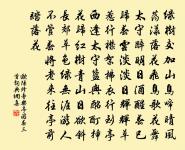 綠樹交加山鳥啼晴風
蕩漾落花飛鳥歌花舞
太守醉明日酒醒春已
歸春雲淡淡日輝輝草
惹行襟絮拂衣行到亭
西逢太守籃輿酩酊插
花歸紅樹青山日欲斜
長郊草色綠無涯遊人
不管春將老來往亭前
踏落花